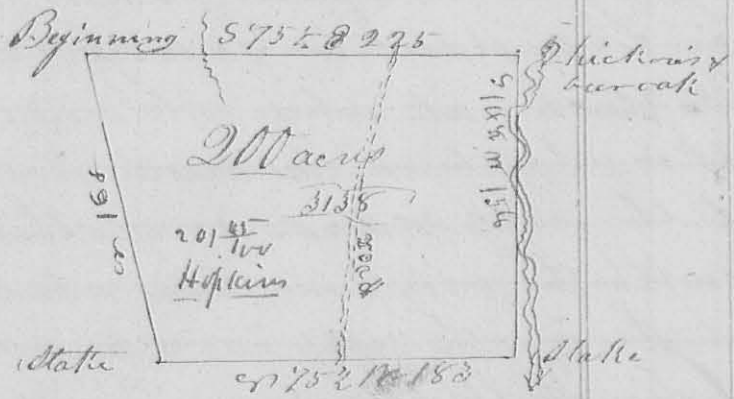 Beginning S 75 1/2 E 225
2 hickories &
bur oak
200 acres
3138
201 45/100
Hopkins
Road
S 168
Stake
N 75 1/2 W 183
Stake